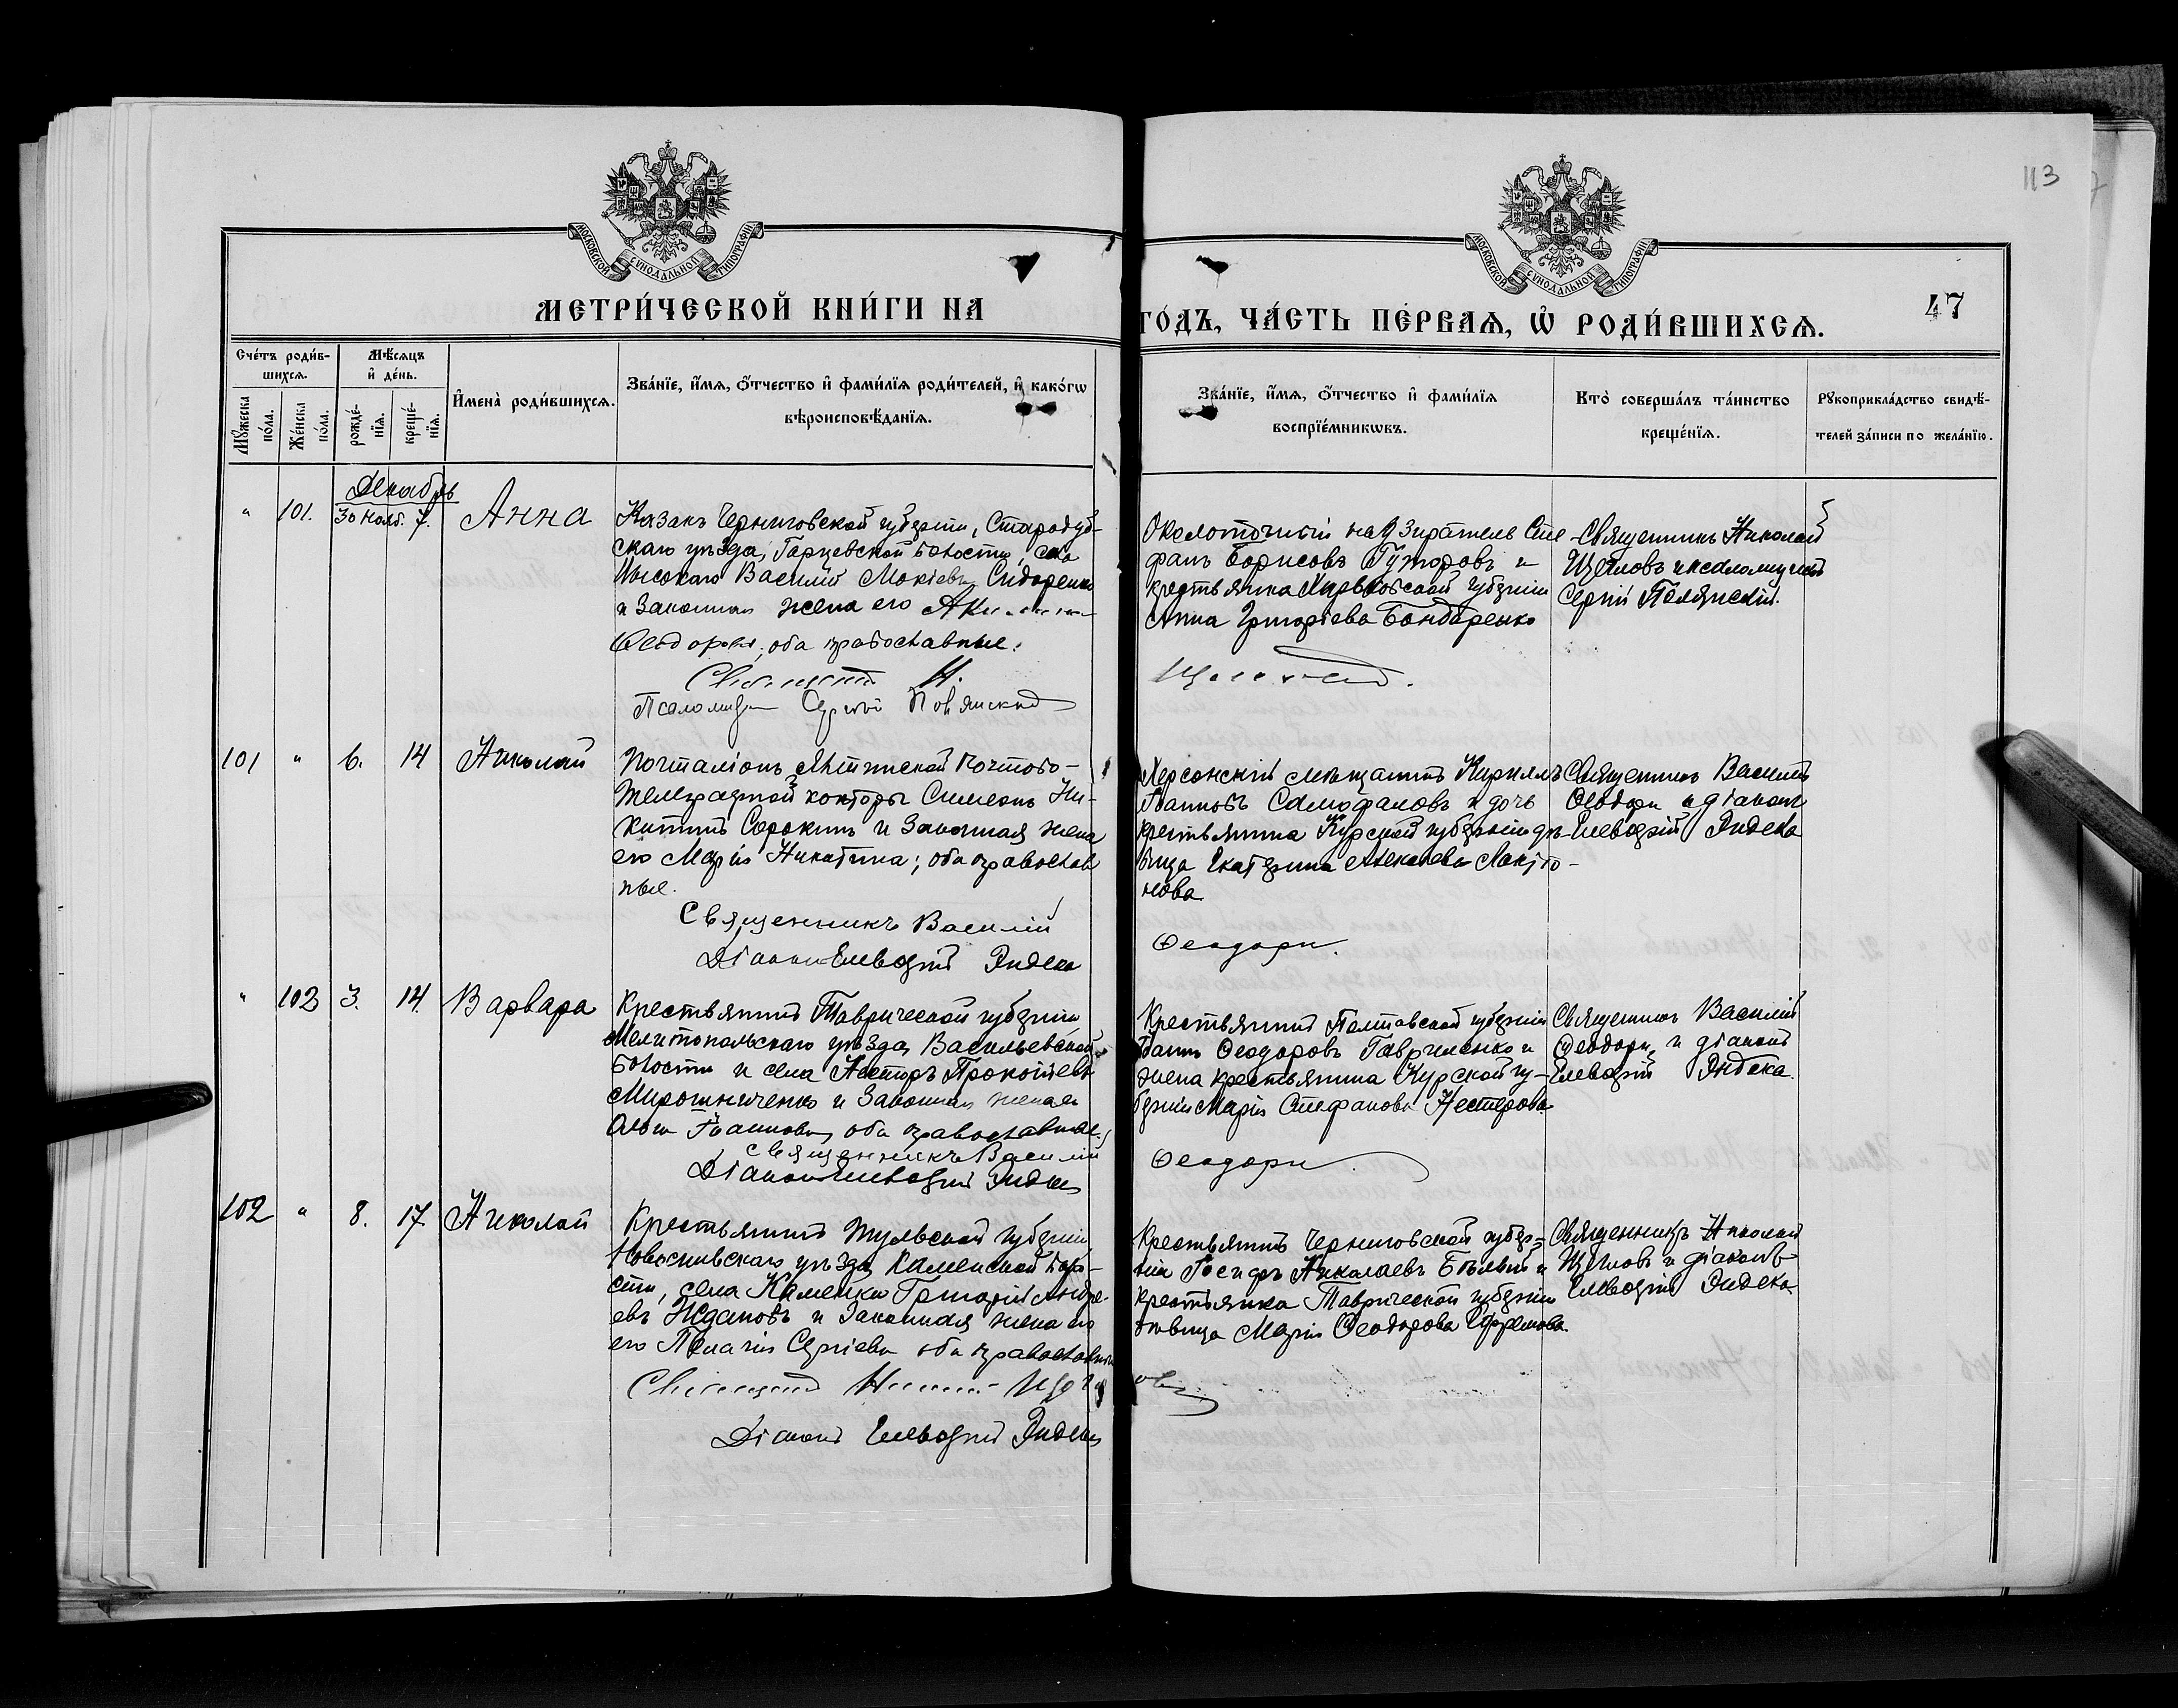 113
МОСКОВСКОЙ СУНОДАЛЬНОЙ ТИПОГРАФІИ
МОСКОВСКОЙ СУНОДАЛЬНОЙ ТИПОГРАФІИ
МЕТРИ́ЧЕСКОЙ КНИ́ГИ НА
ГО́ДЪ, ЧА́СТЬ ПЕ́РВАѦ, Ѿ РОДИ́ВШИХСѦ.
47
Сче́тъ роди́в-
шихсѧ.
Мѣ́сѧцъ
и҆ де́нь.
Мꙋ́жеска по́ла.
Же́нска по́ла.
рожде́-
нїѧ.
креще́-
нїѧ.
И҆мена̀ роди́вшихсѧ.
Зва́нїе, и҆́мѧ, ѻ҆́тчество и҆ фами́лїѧ роди́телей, и҆ како́гѡ
вѣроисповѣ́данїѧ.
Зва́нїе, и҆́мѧ, ѻ҆́тчество и҆ фами́лїѧ
воспрїе́мникѡвъ.
Кто̀ соверша́лъ та́инство
креще́нїѧ.
Рꙋкоприкла́дство свидѣ́-
телей за́писи по жела́нїю.
Декабрь
" 101. 30 нояб. 7. Анна
Казакъ Черниговской губерніи, Стародуб-
скаго уѣзда, волости, села
Василій Мокіевъ Сидоренко
и законная жена его
Ѳеодорова, оба православные.
Н.
Псаломщ Сергій Полянскій
Околоточный надзиратель Сте-
фанъ Борисовъ Гуторовъ и
крестьянка Харьковской губерніи
Анна Григоріева Бондаренко
Священникъ Николай
Щегловъ и псаломщикъ
Сергій Полянскій.
101 " 6. 14 Николай
Почталіонъ Ялтинской Почтово-
Телеграфной конторы Симеонъ Ни-
китинъ Сорокинъ и законная жена
его Марія Никитина; оба православ
ные.
Священникъ Василій
Діаконъ Елевѳерій Эндека
Херсонскій мѣщанинъ Кириллъ
Іоанновъ Самофаловъ и дочь
крестьянина Курской губерніи дѣ-
вица Екатерина Алексѣева Лактіо-
нова
Ѳеодори.
Священникъ Василій
Ѳеодори и діаконъ
Елевѳерій Эндека
" 102 3. 14. Варвара
Крестьянинъ Таврической губерніи
Мелитопольскаго уѣзда, Васильевской
волости и села Несторъ Прокопіевъ
Мирошниченко и законная жена его
Ольга Іоаннова, оба православные.
Священникъ Василій
Діаконъ Елевѳерій Эндека
Крестьянинъ Полтавской губерніи
Іоаннъ Ѳеодоровъ Гавриленко и
жена крестьянина Курской гу-
берніи Марія Стефанова Нестерова
Ѳеодори
Священникъ Василій
Ѳеодори, и діаконъ
Елевѳерій Эндека.
102 " 8. 17 Николай
Крестьянинъ Тульской губерніи
Новосильскаго уѣзда, Каменской воло-
сти, села Каменки Григорій Андре-
евъ Ждановъ и законная жена его
его Пелагія Сергіева оба православные
Діаконъ Елевѳерій Эндека
Крестьянинъ Черниговской губер-
ніи Іосифъ Николаевъ Бѣлый и
крестьянка Таврической губерніи
дѣвица Марія Ѳеодорова Ефремова.
Священникъ Николай
Щегловъ и діаконъ
Елевѳерій Эндека